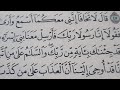 قَالَ لَا تَخَافَا إِنَّنِى مَعَكُمَا أَسْمَعُ وَأَرَىٰ
فَقُولَا إِنَّا رَسُولَا رَبِّكَ فَأَرْسِلْ مَعَنَا بَنِىٓ
قَدْ جِئْنَٰكَ بِـَٔايَةٍ مِّن رَّبِّكَ وَٱلسَّلَٰمُ عَلَىٰ
قَدْ أُوحِىَ إِلَيْنَآ أَنَّ ٱلْعَذَابَ عَلَىٰ مَن كَذَّبَ